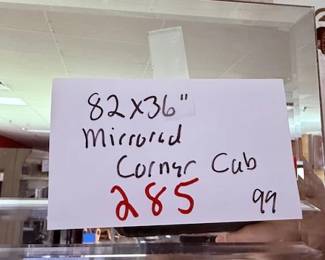 82x36"
Mirrored
Corner Cab
285 99